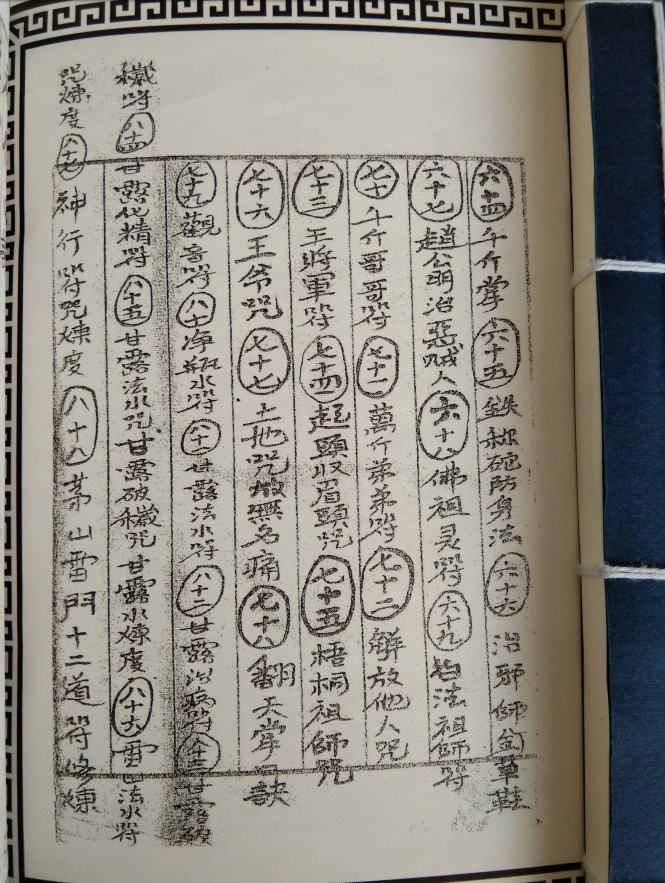 六十四千斤掌六十五鉄䄂砣防身法六十六治邪師金草鞋
六十七趙公明治惡賊人六十八佛祖灵符六十九法祖師符
七十千斤哥哥符七十一萬斤弟弟符七十二解放他人咒
七十三王將軍符七十四起頭收眉頭咒七十五梧桐祖師咒
七十六王爷咒七十七土地咒放無名痛七十八翻天掌口訣
七十九觀音符八十净瓶水符八十一甘露法水符八十二甘露治病符八十三甘露破
穢符八十四甘露化精符八十五甘露法水咒甘露破穢咒甘露水煉度八十六雷法水符
咒煉度八十七神行符咒煉度八十八茅山雷門十二道符修煉